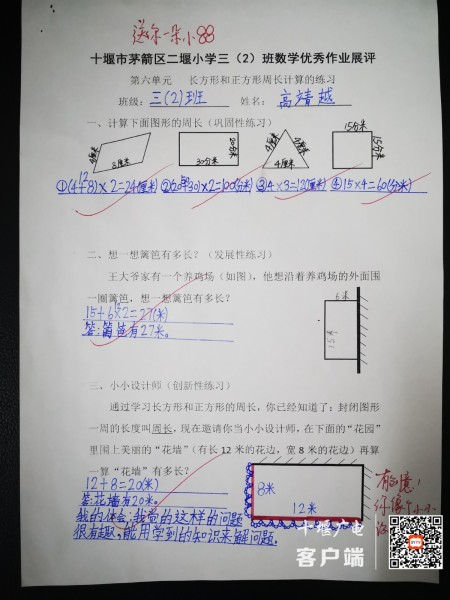 送你一朵小
十堰市茅箭区二堰小学三（2）班数学优秀作业展评
第六单元 长方形和正方形周长计算的练习
班级: 三(2)班 姓名: 高靖越
一、计算下面图形的周长（巩固性练习）
4厘米 8厘米 30分米 20分米 4厘米 4厘米 4厘米 15分米 15分米
①(4+8)×2=24(厘米) ②(20+30)×2=100(分米) ③4×3=12(厘米) ④15×4=60(分米)
二、想一想篱笆有多长？（发展性练习）
王大爷家有一个养鸡场（如图），他想沿着养鸡场的外面围
一圈篱笆，想一想篱笆有多长？
6米
15米
15+6×2=27(米)
答:篱笆有27米。
三、小小设计师（创新性练习）
通过学习长方形和正方形的周长，你已经知道了：封闭图形
一周的长度叫周长，现在邀请你当小小设计师，在下面的“花园”
里围上美丽的“花墙”（有长 12 米的花边，宽 8 米的花边）再算
一算“花墙”有多长？
12+8=20(米)
答:花墙有20米。
8米
12米
我的体会:我觉的这样的问题
很有趣,能用学到的知识来解问题.
十堰广电
客户端